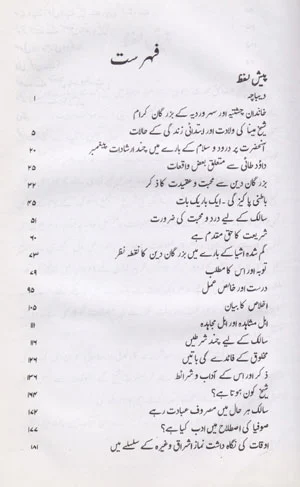 فہرست
پیش لفظ
دیباچہ ۱
خاندان چشتیہ اور سہروردیہ کے بزرگان کرام
شیخ مینا کی ولادت اور ابتدائی زندگی کے حالات ۵
آنحضرت پر درود و سلام کے بارے میں چند ارشادات پیغمبر ۲۰
داؤد طائی سے متعلق بعض واقعات ۲۵
بزرگان دین سے محبت و عقیدت کا ذکر ۳۲
باطنی پاکیزگی - ایک باریک بات ۴۵
سالک کے لیے درد و محبت کی ضرورت ۵۱
شریعت کا حق مقدم ہے ۶۰
گم شدہ اشیا کے بارے میں بزرگان دین کا نقطہ نظر ۷۳
توبہ اور اس کا مطلب ۷۹
درست اور خالص عمل ۹۵
اخلاص کا بیان ۱۰۵
اہل مشاہدہ اور اہل مجاہدہ ۱۱۱
سالک کے لیے چند شرطیں ۱۱۶
مخلوق کے فائدے کی باتیں ۱۲۶
ذکر اور اس کے آداب و شرائط ۱۳۶
شیخ کون ہوتا ہے؟ ۱۶۴
سالک ہر حال میں مصروف عبادت رہے ۱۷۲
صوفیا کی اصطلاح میں ادب کیا ہے؟ ۱۷۷
اوقات کی نگاہ داشت نماز اشراق وغیرہ کے سلسلے میں ۱۸۱